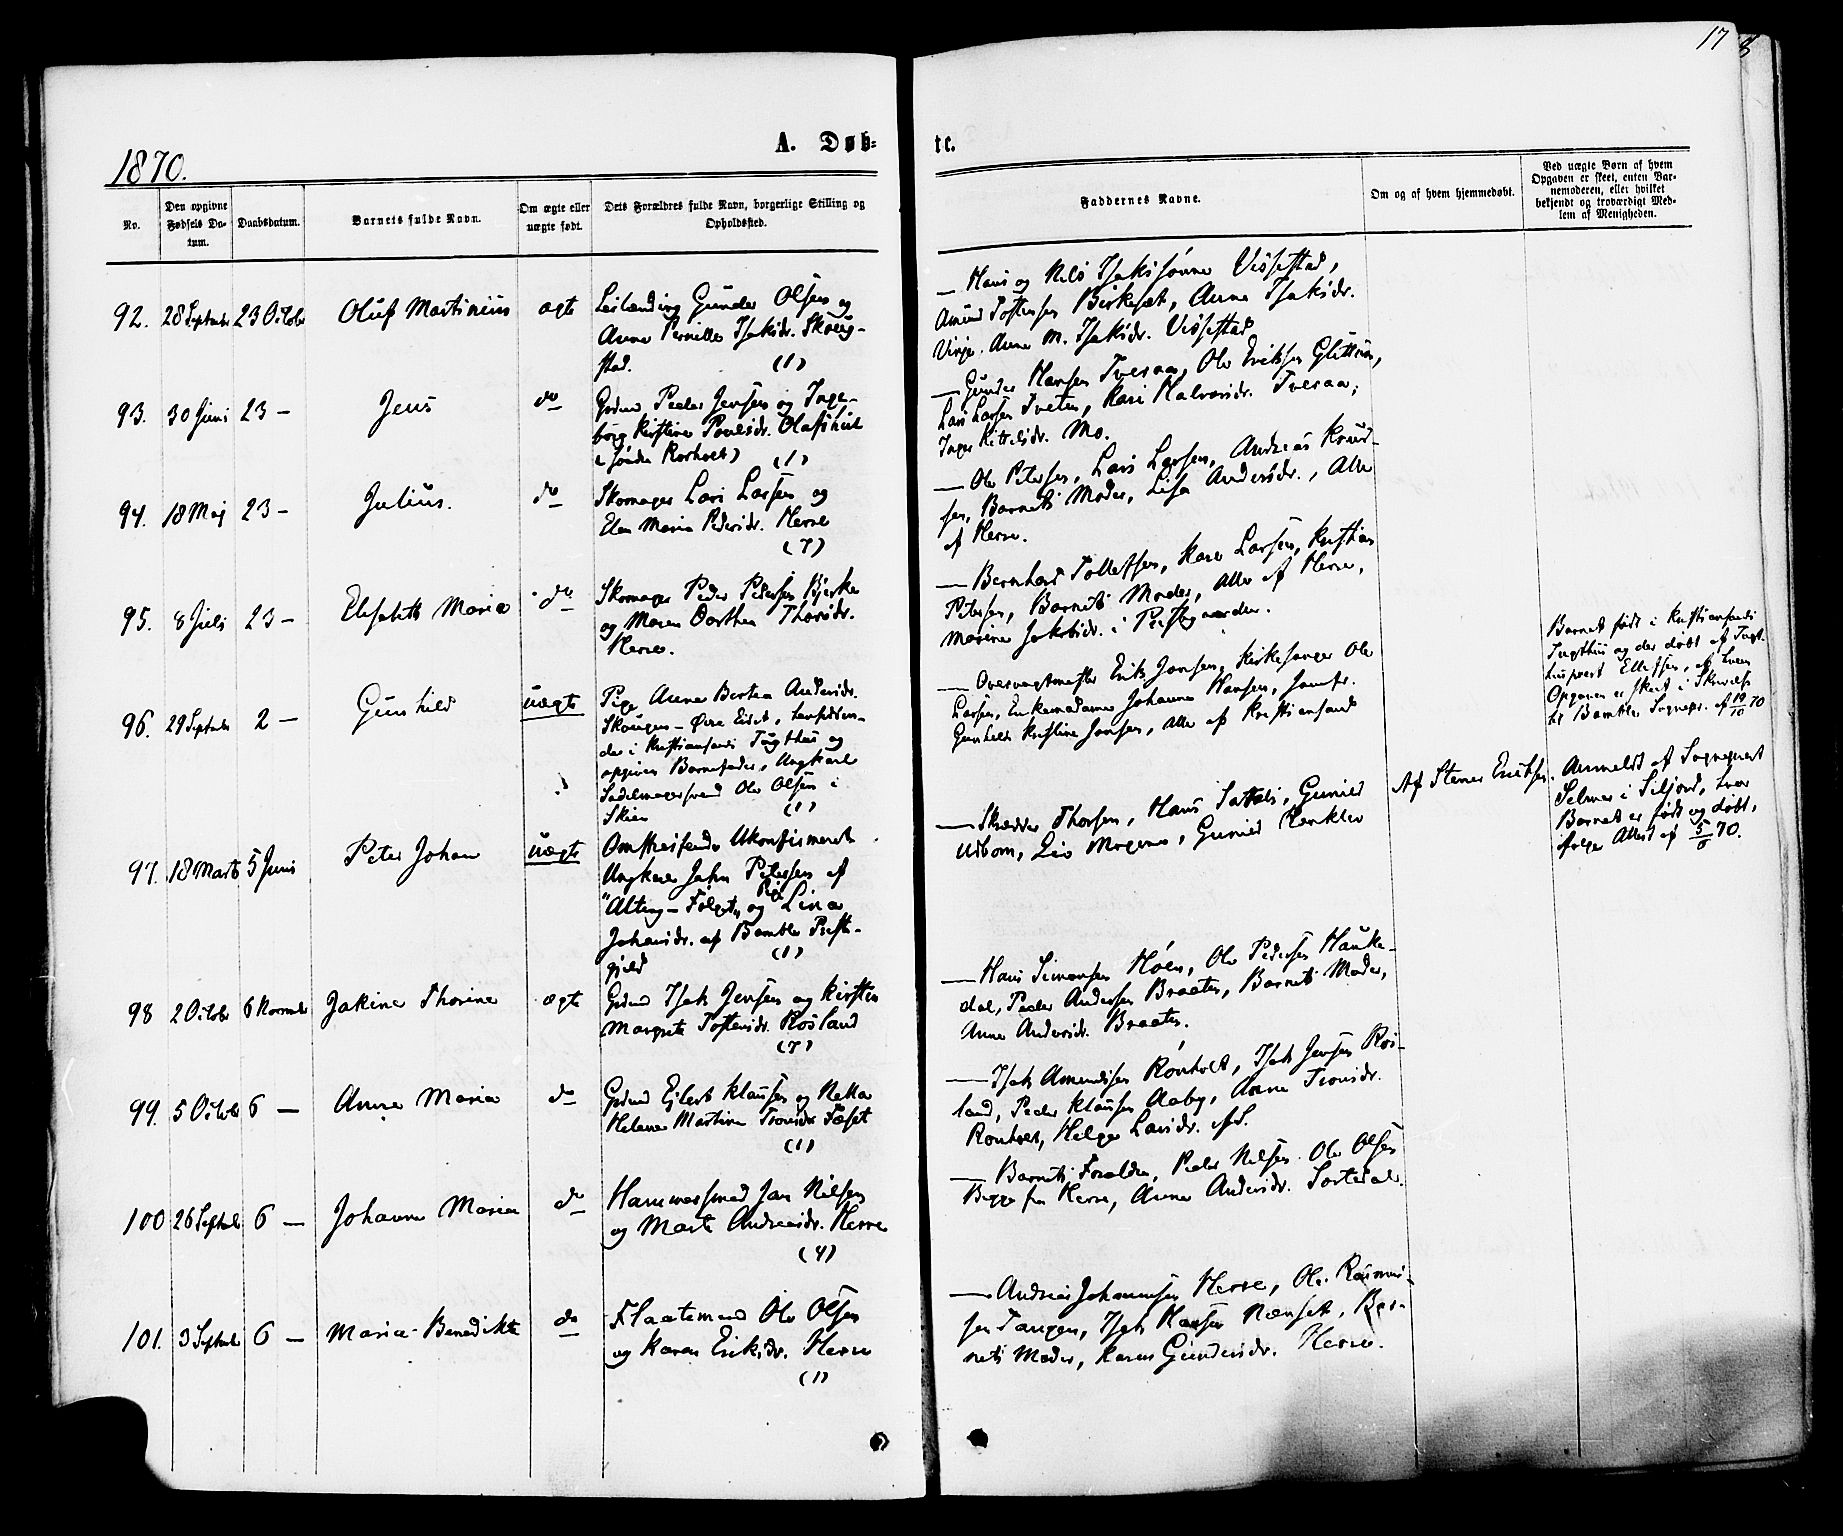 17
8
1870.
A. Døb-
te.
No.
Den opgivne
Fødsels Da-
tum.
Daabsdatum.
Barnets fulde Navn.
Om ægte eller
uægte født.
Dets Forældres fulde Navn, borgerlige Stilling og
Opholdssted.
Faddernes Navne.
Om og af hvem hjemmedøbt.
Ved uægte Børn af hvem
Opgaven er skeet, enten Bar-
nemoderen, eller hvilket
bekjendt og troværdigt Med-
lem af Menigheden.
92. 28 Septembr 23 Octobr Oluf Martinius ægte
Leilænding Gunder Olsen og
Anne Pernille Isaksdr. Skoug-
stad. (1)
— Hans og Nils Isaksønner Vissestad,
Amund Tostensen Birkeset, Anne Isaksdr.
Virje. Anne M. Isaksdr. Vissestad
93. 30 Juni 23 — Jens do
Grdmd Peder Jensen og Inge-
borg Kirstine Poulsdr. Olafshul
(søndre Rorholt) (1)
— Gunder Hansen Tveraa, Ole Eriksen
Lars Larsen Tveten, Kari Halvorsdr. Tveraa,
Inger Kittelsdr. Mo.
94. 18 Maj 23 — Julius. do
Skomager Lars Larsen og
Elen Maria Pedersdr. Herre
(7)
— Ole Petersen, Lars Larsen, Andreas Knud-
sen, Barnets Moder, Lisa Andersdr., Alle
af Herre.
95. 8 Juli 23 — Elisabeth Maria do
Skomager Peder Pedersen Bjerke
og Maren Dorthea Thorsdr.
Herre.
— Bernhard Tollefsen, Karen Larsen, Kristian
Petersen, Barnets Moder, Alle af Herre,
Marine Jakobsdr. i Prestegaarden.
96. 29 Septembr 2 — Gunhild uægte
Pige Anne Bertea Andersdr.
Skougen — Øvre Eidet,
der i Kristiansands Tugthus og
opgiven Barnefader, Ungkarl
Sadelmagersvend Ole Olsen i
Skien (1)
— Overvagtmester Erik Jonsen, Kirkesanger Ole
Larsen, Enkemadame Johanne Hansen, Jomfr.
Gunhild Kristine Jonsen, alle af Kristiansand
Barnet født i Kristiansands
Tugthus og der døbt af Tugt-
huspræst Ellefsen, af hvem
Opgaven er skeet i Skrivelse
til Bamble Sognepr. af 10/10 70
97. 18 Marts 5 Juni Peter Johan uægte
Omstreifende Ukonfirmeret
Ungkarl John Petersen af
"Alteng-Følget" og Pige Lina
Johansdr. af Bamble Preste-
gjeld (1)
— Skrædder Thorsen, Hans Gunild
Udbom, Liv Mogene, Gunild
Af Stener Eriksen.
Anmeldt af Sognepræst
Selmer i Siljord, hvor
Barnet er født og døbt,
ifølge Attest af 5/6 70.
98 2 Octobr 6 Novembr Jakine Thorine ægte
Grdmd Isak Jensen og Kirsten
Margrete Tostensdr. Rosland
(7)
— Hans Simonsen Høen, Ole Pedersen Hauke-
dal, Peder Andersen Braaten, Barnets Moder,
Anne Andersdr. Braaten.
99. 5 Octobr 6 — Anne Maria do
Grdmd Ejlert Klausen og Netta
Helene Martine Tronsdr. Fæset
(1)
— Isak Amundsen Rønholt, Isak Jensen Ros-
land, Peder Klausen Aaby, Anne Tronsdr.
Rønholt, Helge Larsdr. ibd.
100 26 Septembr 6 — Johanne Maria do
Hammersmed Jan Nilsen
og Marte Andreasdr. Herre
(4)
— Barnets Forældre, Peder Nilsen. Ole Olsen
Begge fra Herre, Anne Andersdr. Sortedal.
101. 3 Septembr 6 — Maria Benedikte do
Flaatemand Ole Olsen
og Karen Eriksdr. Herre
(1)
— Andreas Johannesen Herre, Ole Rasmus-
sen Tangen, Isak Hansen Nenset, Bar-
nets Moder, Karen Gundersdr. Herre.